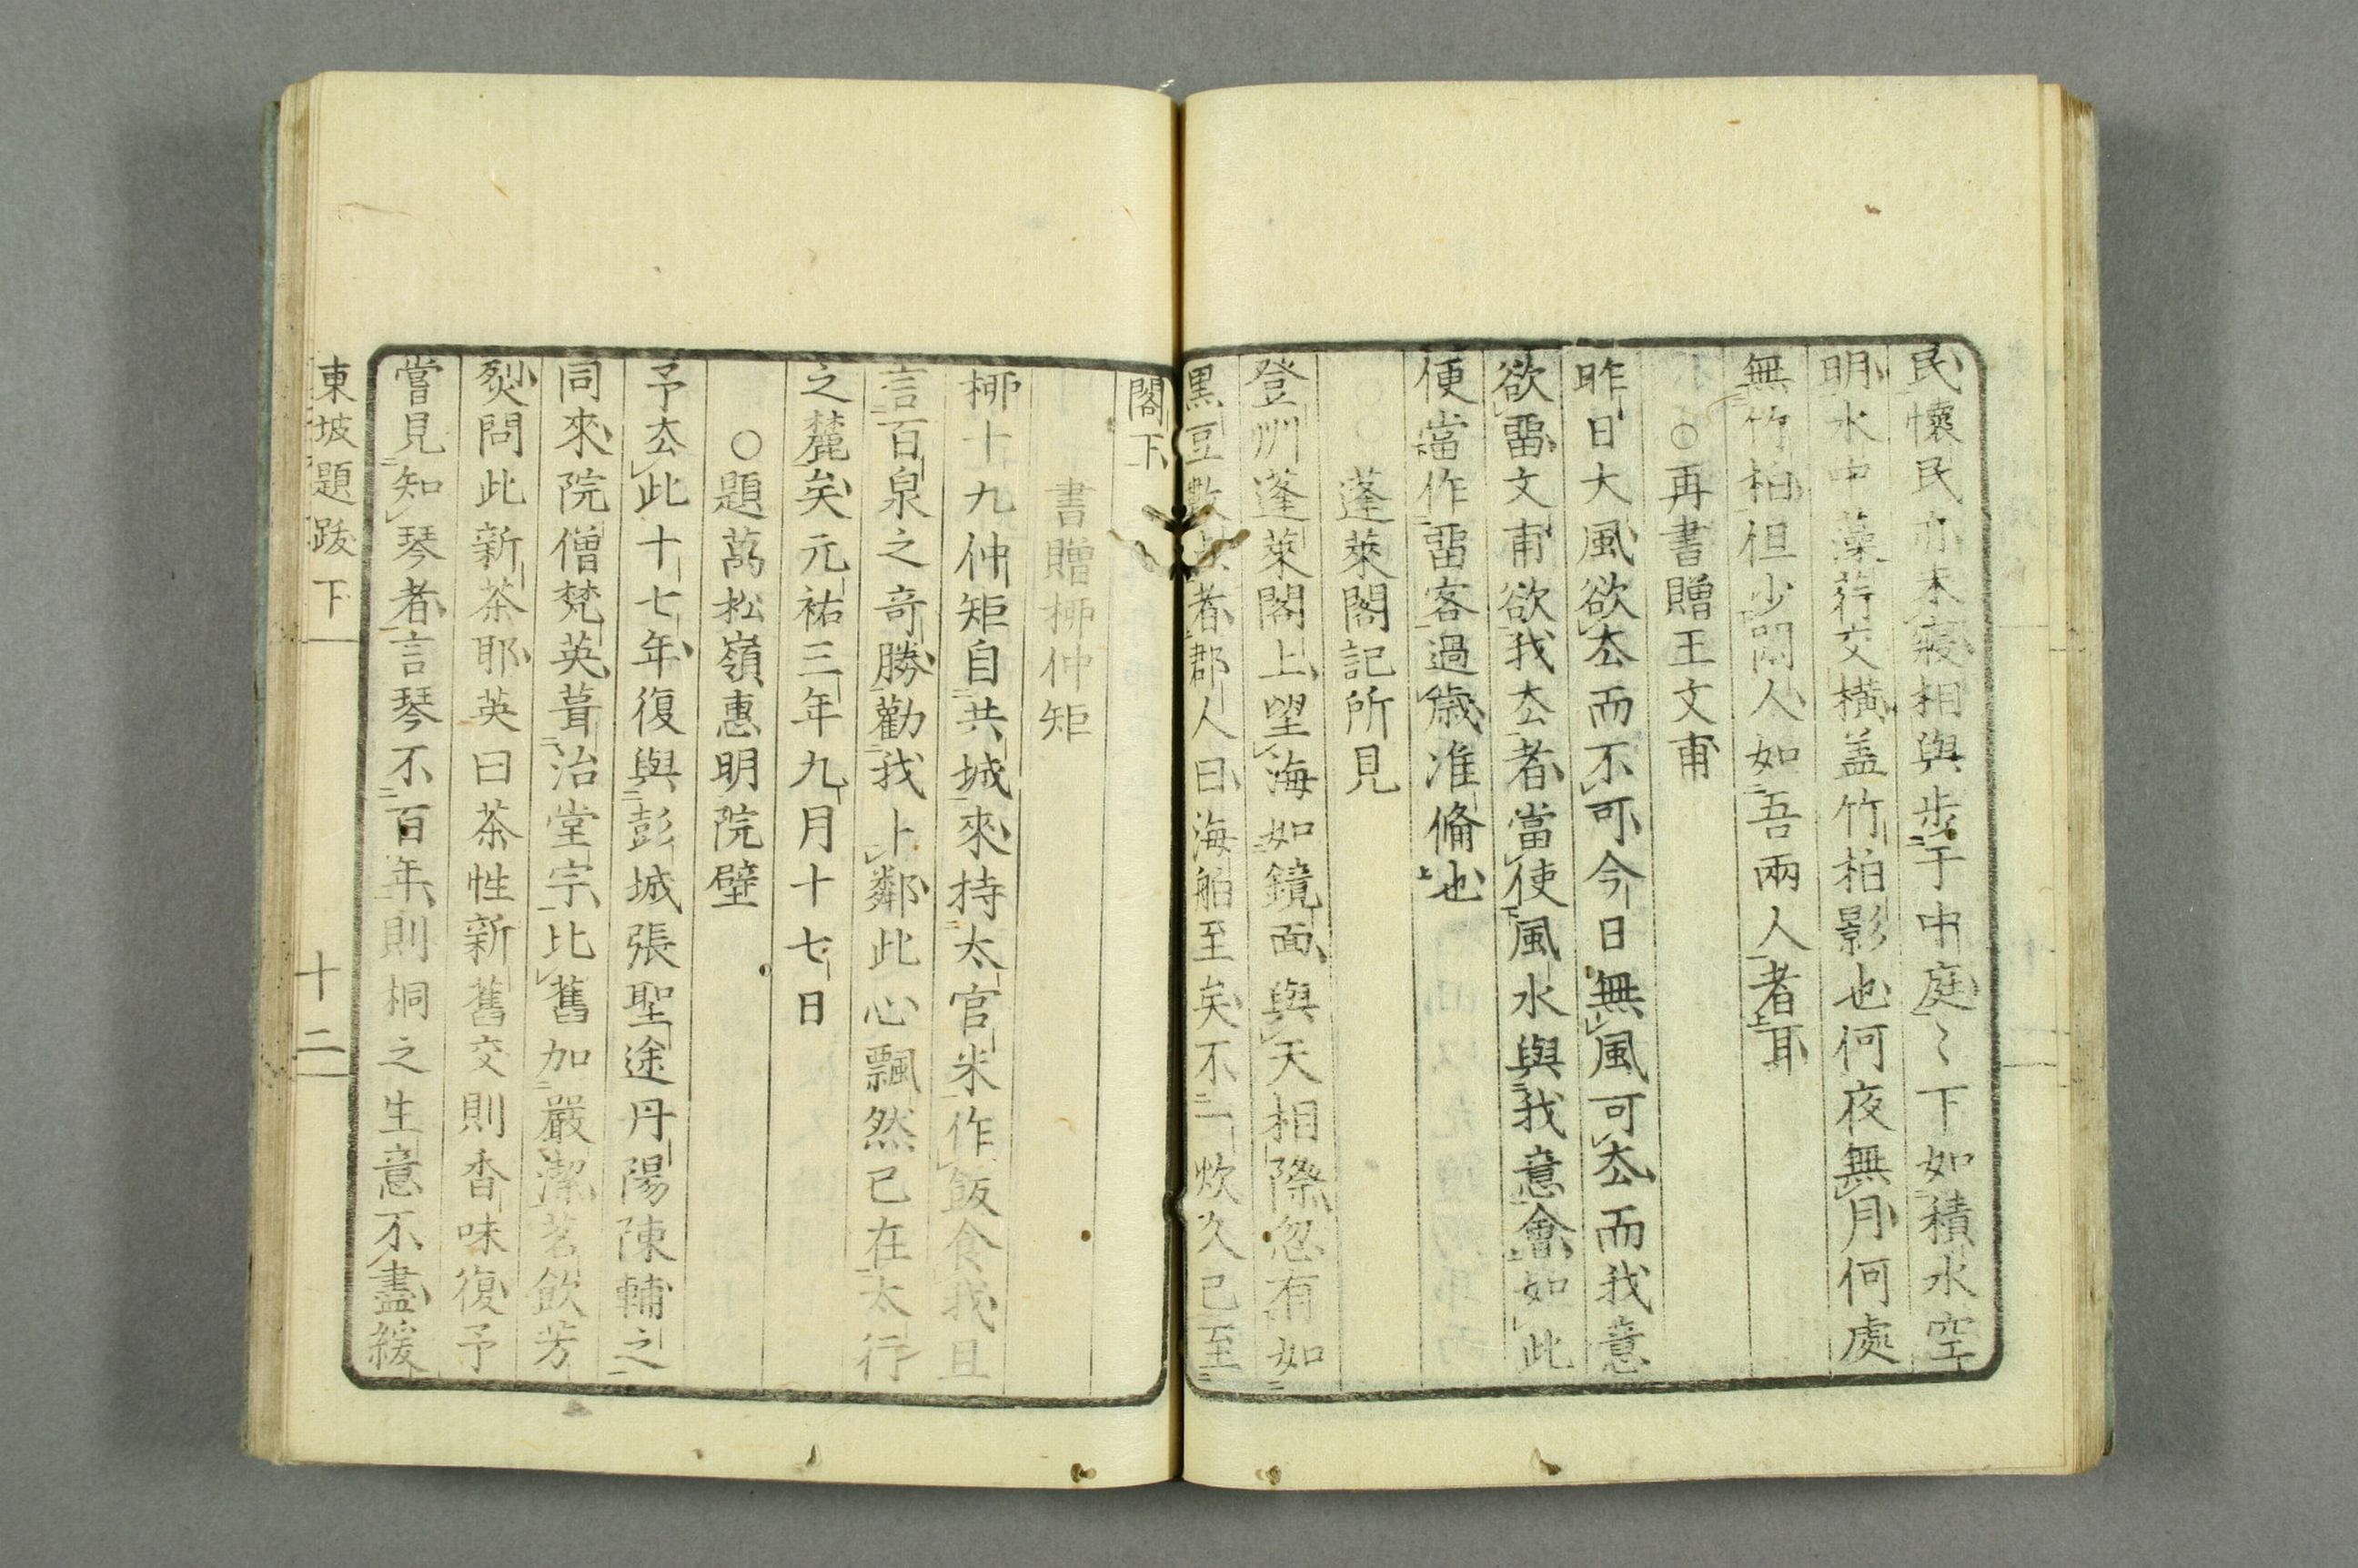 民懷民亦未寢相與步于中庭〻下如積水空
明水中藻荇交橫盖竹柏影也何夜無月何處
無竹柏但少閑人如吾兩人者耳
○再書贈王文甫
昨日大風欲去而不可今日無風可去而我意
欲畱文甫欲我去者當使風水與我意會如此
便當作畱客過歲准備也
蓬萊閣記所見
登州蓬萊閣上望海如鏡面與天相際忽有如
黒豆數者郡人曰海舶至矣不一炊久已至
閣下
書贈桺仲矩
桺十九仲矩自共城來持太官米作飯食我且
言百泉之奇勝勸我卜鄰此心飄然已在太行
之麓矣元祐三年九月十七日
○題萬松嶺惠明院壁
予去此十七年復與彭城張聖途丹陽陳輔之
同來院僧梵英葺治堂宇比舊加嚴潔茗飲芳
烈問此新茶耶英曰茶性新舊交則香味復予
嘗見知琴者言琴不百年則桐之生意不盡緩
東坡題跋下
十二